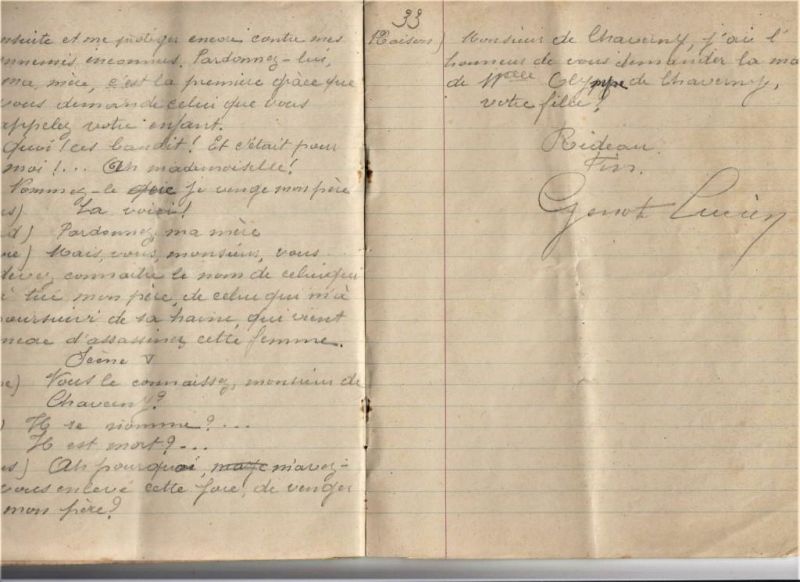 nsuite et me protéger encore contre mes
nnemis inconnus. Pardonnez-lui,
ma mère, c'est la première grâce que
vous demande celui que vous
appelez votre enfant.
Quoi! ces bandit! Et c'était pour
moi!... Ah mademoiselle!
Nommez-le que je venge mon père
s) La voici!
d) Pardonnez, ma mère
re) Mais, vous, monsieur, vous
devez, connaître le nom de celui qui
à tué mon père, de celui qui m'à
poursuivi de sa haine, qui vient
ncore d'assassiner cette femme.
Scène V
ne) Vous le connaissez, monsieur de
Chaverny?
) Il se nomme?...
Il est mort?...
es) Ah pourquoi, m'avez-
vous enlevé cette joie, de venger
mon père?
33
Monsieur de Chaverny, j'ai l'
honneur de vous demander la ma
de Melle Olympe de Chaverny,
votre fille!
Rideau
Fin.
Genot Lucien